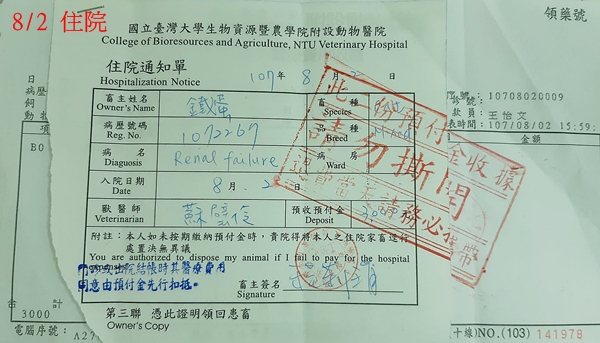 8/2 住院
領藥號
國立臺灣大學生物資源暨農學院附設動物醫院
College of Bioresources and Agriculture, NTU Veterinary Hospital
住院通知單
107年 8月 2日
Hospitalization Notice
畜主姓名 鐵蛋 畜種
Owner's Name Species
病歷號碼 1072267 品種
Reg. No. Breed
病名 Renal failure 病房
Diagnosis Ward
入院日期 8月 2日
Date
獸醫師 預收預付金
Veterinarian Deposit
附註：本人如未按期繳納預付金時，貴院得將本人之住院家畜逕行
處置決無異議
You are authorized to dispose my animal if I fail to pay for the hospital
門診或出院結帳時其醫療費用
同意由預付金先行扣抵。
畜主簽名
Signature
第三聯 憑此證明領回患畜
Owner's Copy
此份預付金收據
請勿撕開
請務必攜帶
10708020009
款員：王怡文
表時間：107/08/02 15:59:
金額
日
病歷
飼
動物
項
B0
合 計
3000
電腦序號： A27
十線)NO.(103) 141978